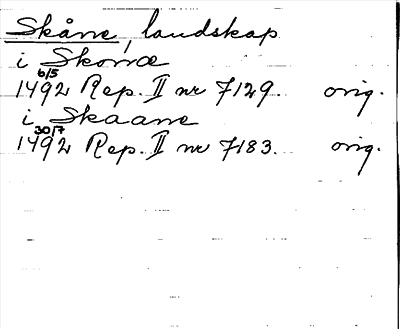 Skåne, landskap
i Skonæ
6/5
1492 Rep. II nr 7129. orig.
i Skaane
30/7
1492 Rep. II nr 7183. orig.